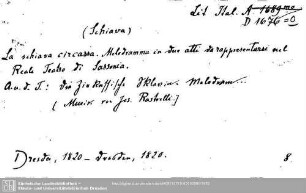 Lit. Ital. A 1689 m
D 1676=0
(Schiava)
La schiava circassa. Melodramma in due atti da rappresentarsi nel
Reale Teatro di Sassonia.
A. u. d. T.: die Zirkassische Sklavin. Melodram...
[Musik von Jos. Rastrelli.]
Dresda, 1820 – Dresden, 1820.
8.
Sächsische Landesbibliothek –
Staats- und Universitätsbibliothek Dresden